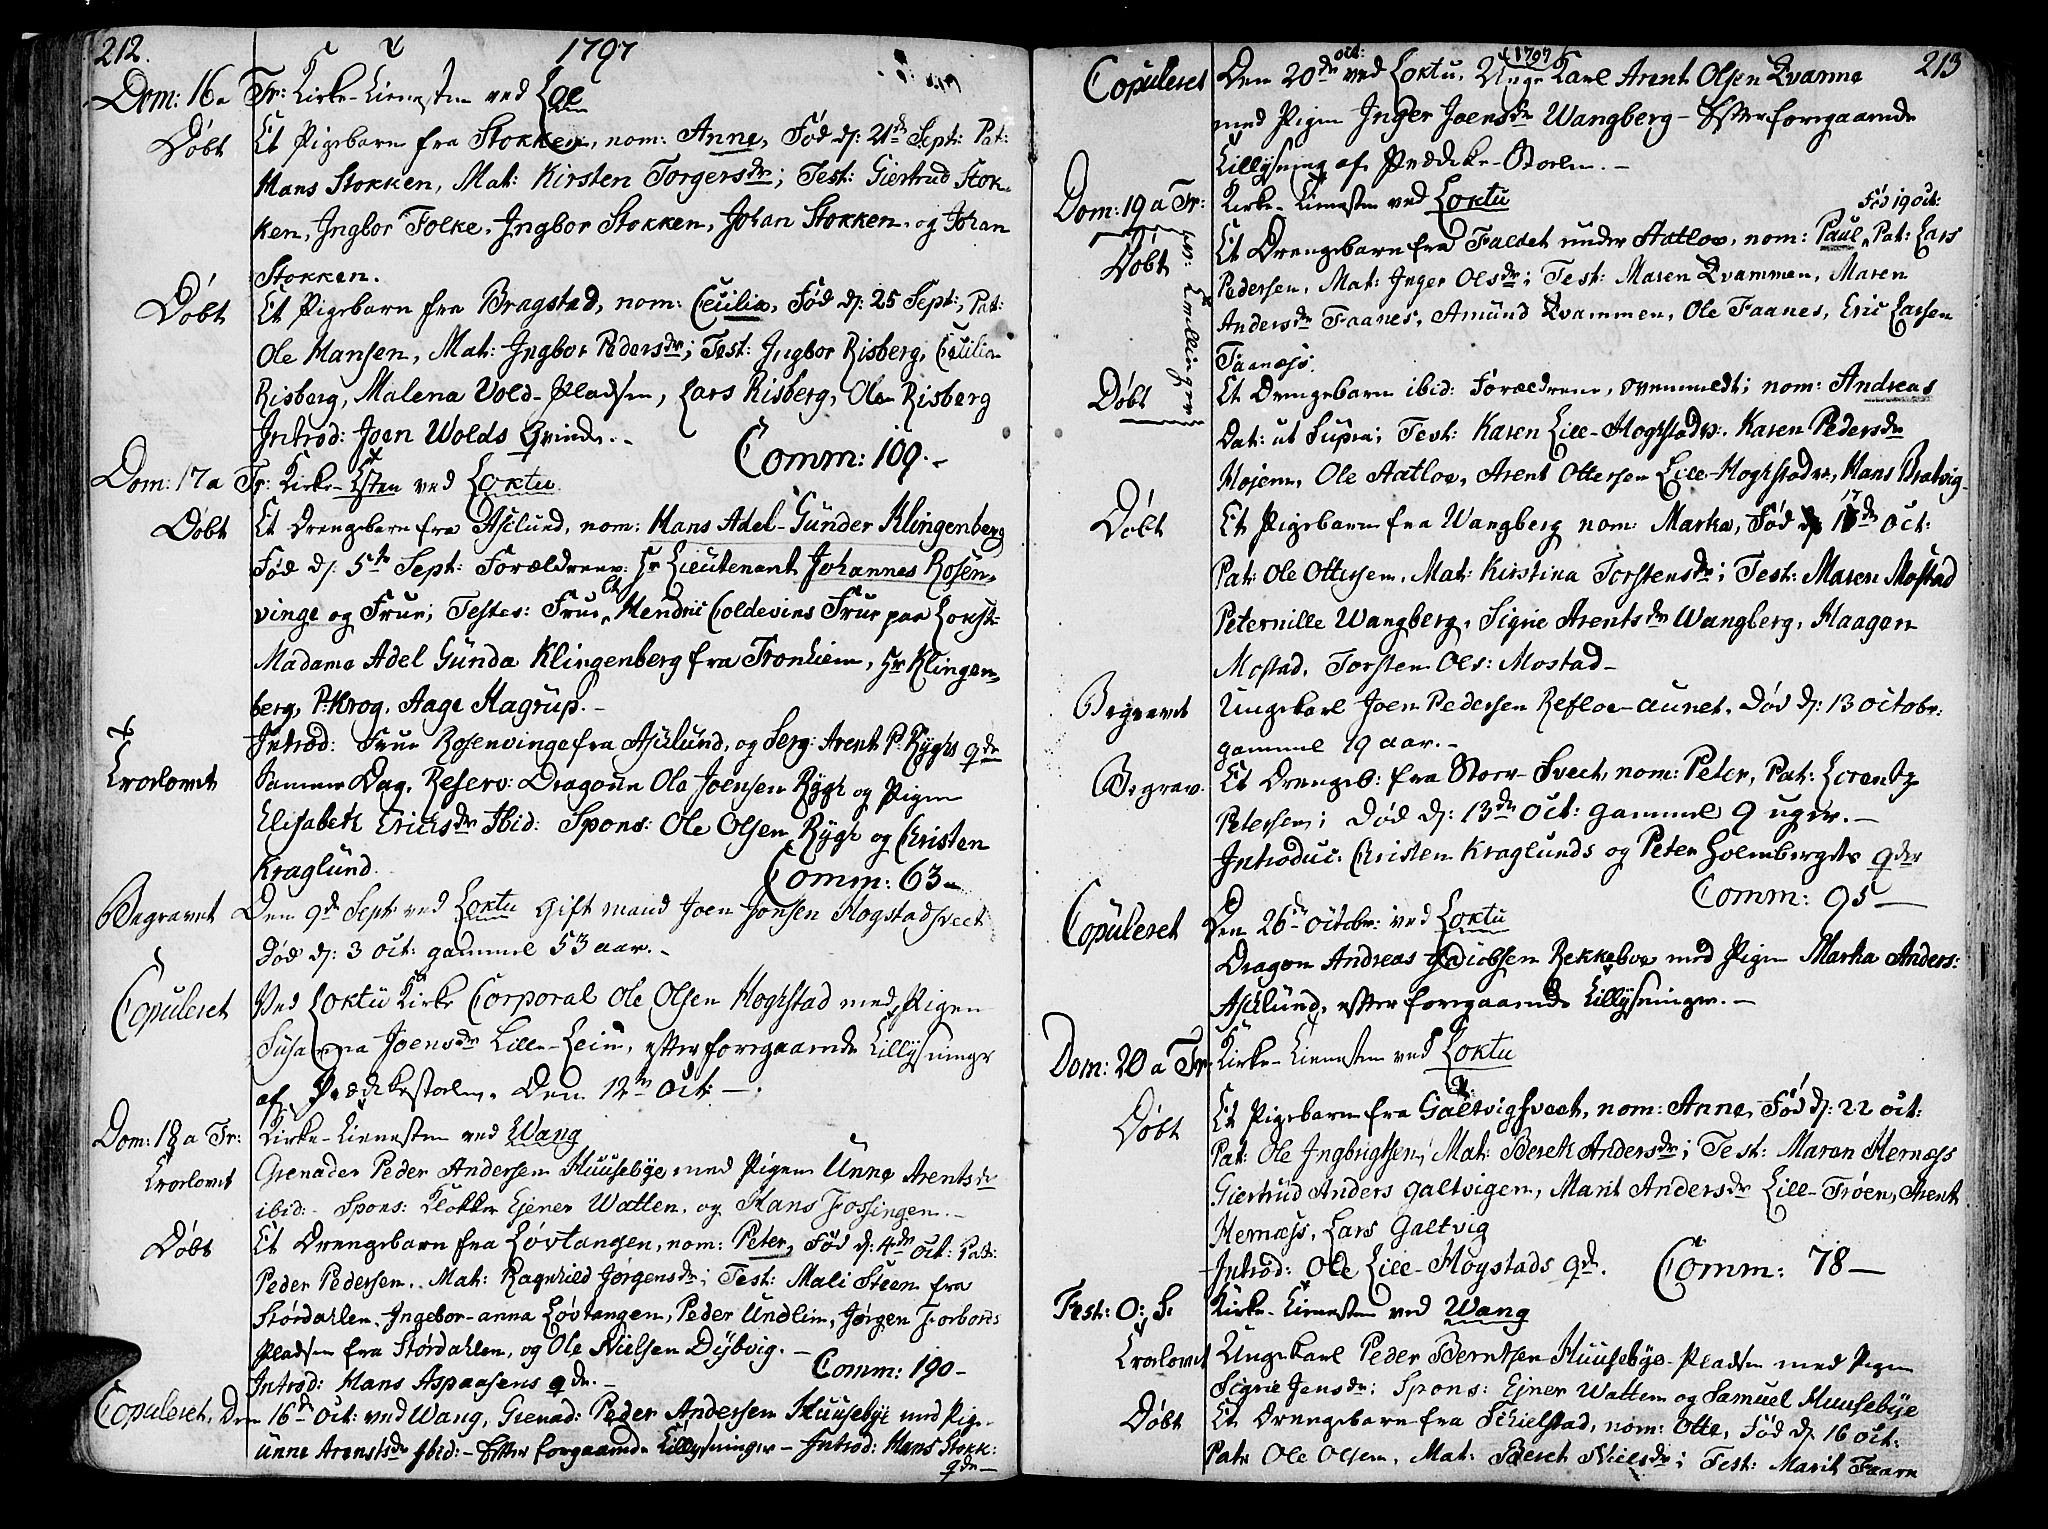 212.
1797
Dom: 16 a Tr: Kirke-Tienesten ved Loe
Døbt Et Pigebarn fra Stokken, nom: Anne, Fød d: 21de Sept: Pat:
Hans Stokken, Mat: Kirsten Torgersdr; Test: Giertrud Stok-
ken, Ingbor Folke, Ingbor Stokken, Johan Stokken, og Johan
Stokken.
Døbt Et Pigebarn fra Bragstad, nom: Cecilia, Fød d: 25 Sept:, Pat:
Ole Hansen, Mat: Ingbor Pedersdr; Test: Ingbor Risberg, Cecilia
Risberg, Malena Vold-Pladsen, Lars Risberg, Ole Risberg
Introd: Joen Wolds Qvinde.-
Comm: 109.-
Dom: 17 a Tr: Kirke-Tsten ved Loktu
Døbt Et Drengebarn fra Asklund, nom: Hans Adel-Gunder Klingenberg
Fød d: 5te Sept: Forældrene: Hr Lieutenant Johannes Rosen-
vinge og Frue; Testes: Frue Hendric Coldevins Frue paa
Madame Adel Gunda Klingenberg fra Tronhiem, Hr Klingen-
berg, P: Krog, Aage Hagrup.-
Introd: Frue Rosenvinge fra Asklund, og Serg: Arent P: Ryghs qde
Trolovet Samme Dag, Reserv: Dragoun Ole Joensen Rygh og Pigen
Elisabeth Erichsdr Ibid: Spons: Ole Olsen Rygh og Christen
Kraglund.
Comm: 63-
Begravet Den 9de Sept ved Loktu Gift mand Joen Jonsen Hogstadsveet
Død d: 3 Oct: gammel 53 aar.-
Copuleret Ved Loktu Kirke Corporal Ole Olsen Hoghstad med Pigen
Susanna Joensdr Lille-Lein, efter foregaaende Tillysninger
af Prædikestolen. Den 12te Oct-
Dom: 18 a Tr: Kirke-Tienesten ved Wang
Trolovet Grenader Peder Andersen Huusebye med Pigen Unne Arentsdr
ibid:- Spons: Klokker Ejner Watten, og Hans Fossingen.-
Døbt Et Drengebarn fra Løvtangen, nom: Peter, Fød d: 4de Oct: Pat:
Peder Pedersen. Mat: Ragnhild Jørgensdr; Test: Mali Steen fra
Størdahlen, Ingebor-anna Løvtangen, Peder Undlin, Jørgen Forbords
Pladsen fra Størdahlen, og Ole Nielsen Dybvig.-
Comm: 190-
Introd: Hans Aspaasens qde.-
Copuleret, Den 16de Oct: ved Wang, Grenad: Peder Andersen Huusebye med Pige
Unne Arentsdr Ibid:- Efter foregaaende Tillysninger- Introd: Hans Stokk:
qde-
213
1797
Copuleret Den 20de Oct: ved Loktu, Unge Karl Arent Olsen Qvamme
med Pigen Inger Joensdr Wangberg- Efter foregaaende
Tillysning af Prædike-Stolen.-
Dom: 19 a Tr: Kirke-Tienesten ved Loktu
Fød 19 Oct:
Døbt Et Drengebarn fra Faldet under Aatloe, nom: Paul, Pat: Lars
Pedersen, Mat: Inger Olsdr; Test: Maren Qvammen, Maren
Andersdr Faanes, Amund Qvammen, Ole Faanes, Eric Larsen
Faanæss.
Tvillinger
Døbt Et Drengebarn ibid: Forældrene, ovenmeldt; nom: Andreas
Dat: ut Supra; Test: Karen Lill-Hoghstad, Karen Pedersdr
Mojem, Ole Aatloe, Arent Ottersen Lill-Hoghstad, Hans Bratvig-
Døbt Et Pigebarn fra Wangberg nom: Marha, Fød 17de Oct:
Pat: Ole Ottersen, Mat: Kirstina Torstensdr; Test: Maren Mostad
Peternille Wangberg, Sigrie Arentsdr Wangberg, Haagen
Mostad, Torsten Ols: Mostad-
Begravet Ungekarl Joen Pedersen Refloe-aunet, Død d: 13 Octobr:
gammel 19 aar.-
Begrav. Et Drengeb: fra Stor-Sveet, nom: Peter, Pat: Lorentz
Petersen; Død d: 13de Oct: gammel 9 uger.-
Introduc: Christen Kraglunds og Peter Holmbergets qder
Comm: 95-
Copuleret Den 26de Octobr: ved Loktu
Dragon Andreas Jacobsen Rekkeboe med Pigen Marha Anders:
Asklund, efter foregaaende Tillysninger.-
Dom: 20 a Tr: Kirke-Tienesten ved Loktu
Døbt Et Pigebarn fra Galtvigsveet, nom: Anne, Fød d: 22 Oct:
Pat: Ole Ingbrigtsen, Mat: Bereth Andersdr; Test: Maren Hernæss
Giertrud Anders Galtvigen, Marit Andersdr Lill-Trøen, Arent
Hernæss, Lars Galtvig
Introd: Ole Lill-Hogstads qde.
Comm: 78-
Fest: O: S: Kirke-Tienesten ved Wang
Trolovet Ungekarl Peder Berntsen Huusebye-Pladsen med Pigen
Sigrie Jensdr; Spons: Ejner Watten og Samuel Huusebye
Døbt Et Drengebarn fra Schielstad, nom: Otte, Fød d: 16 Oct:
Pat: Ole Olsen, Mat: Beret Nielsdr; Test: Marit Faarn